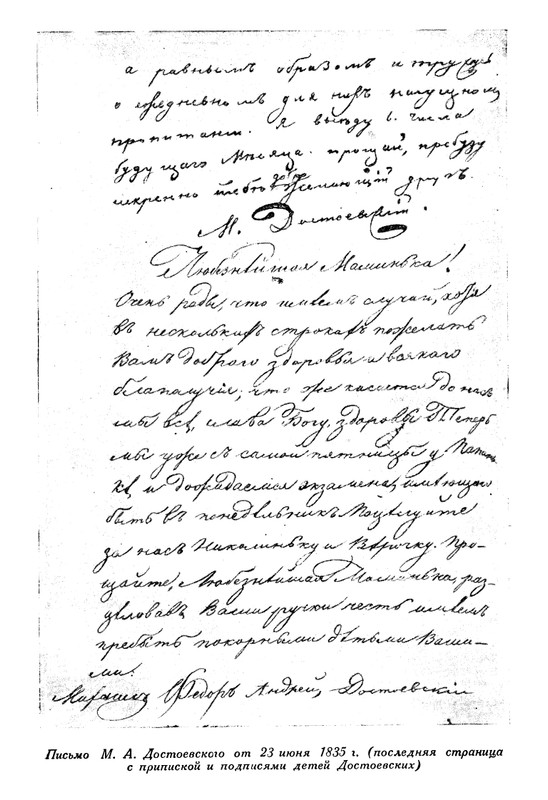 а равнымъ образомъ и трудъ
о ежедневномъ для насъ насущномъ
пропитанiи. Я выеду 6. числа
будущаго Мѣсяца. прощай, пребуду
искренно тебѣ желающiй другъ.
М. Достоевскiй.
Любезнѣйшая Маминька!
Очень рады, что имѣемъ случай, хотя
въ несколькихъ строкахъ пожелать
Вамъ добраго здоровья и всякаго
благапалучiя; что же касается до насъ
мы всѣ, слава Богу, здоровы. Теперь
мы уже съ самой пятницы у Папинь
кѣ, и дожидаемся экзамена, имѣющаго
быть въ понедѣльникъ. Поцелуйте
за насъ Николиньку и Вѣрочку. Про-
щайте, Любезнѣйшая Маминька, раз-
цѣловавъ Ваши ручки честь имѣемъ
пребыть покорными дѣтьми Ваши-
ми:
Михаилъ Ѳедоръ Андрей, Достоевскiи
Письмо М. А. Достоевского от 23 июня 1835 г. (последняя страница
с припиской и подписями детей Достоевских)